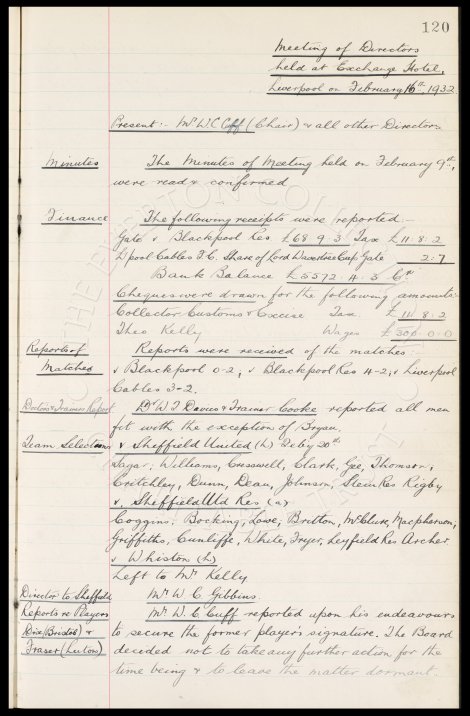 120
Meeting of Directors
held at Exchange Hotel,
Liverpool on February 16th, 1932
Present:- Mr W.C. Cuff (Chair) & all other Directors
Minutes The Minutes of Meeting held on February 9th,
were read & confirmed
Finance The following receipts were reported:-
Gate v Blackpool Res £68 . 9 . 3 Tax £11 : 8 : 2
L'pool Cables F.C. Share of Lord Wavertree Cup Gate 2 : 7
Bank Balance £5572 . 4 . 3 Cr
Cheques were drawn for the following amounts:-
Collector Customs & Excise Tax. £11 : 8 : 2
Theo Kelly Wages £300 . 0 . 0
Reports of Reports were received of the matches:-
Matches v Blackpool 0-2, v Blackpool Res 4-2, v Liverpool
Cables 3-2.
Doctors & Trainers Report Dr W J Davies & Trainer Cooke reported all men
fit with the exception of Bryan.
Team Selections v Sheffield United (h) Feby 20th
Sagar; Williams, Cresswell, Clark, Gee, Thomson,
Critchley, Dunn, Dean, Johnson, Stein Res Rigby
v. Sheffield Utd Res (a)
Coggins; Bocking, Lowe, Britton, McClure, Macpherson,
Griffiths, Cunliffe, White, Fryer, Leyfield Res Archer
v Whiston (h)
Left to Mr Kelly
Director to Sheffield Mr W. C. Gibbins.
Reports re Players Mr W. C. Cuff reported upon his endeavours
Dix (Bristol) & to secure the former player's signature. The Board
Fraser (Luton) decided not to take any further action for the
time being & to leave the matter dormant.